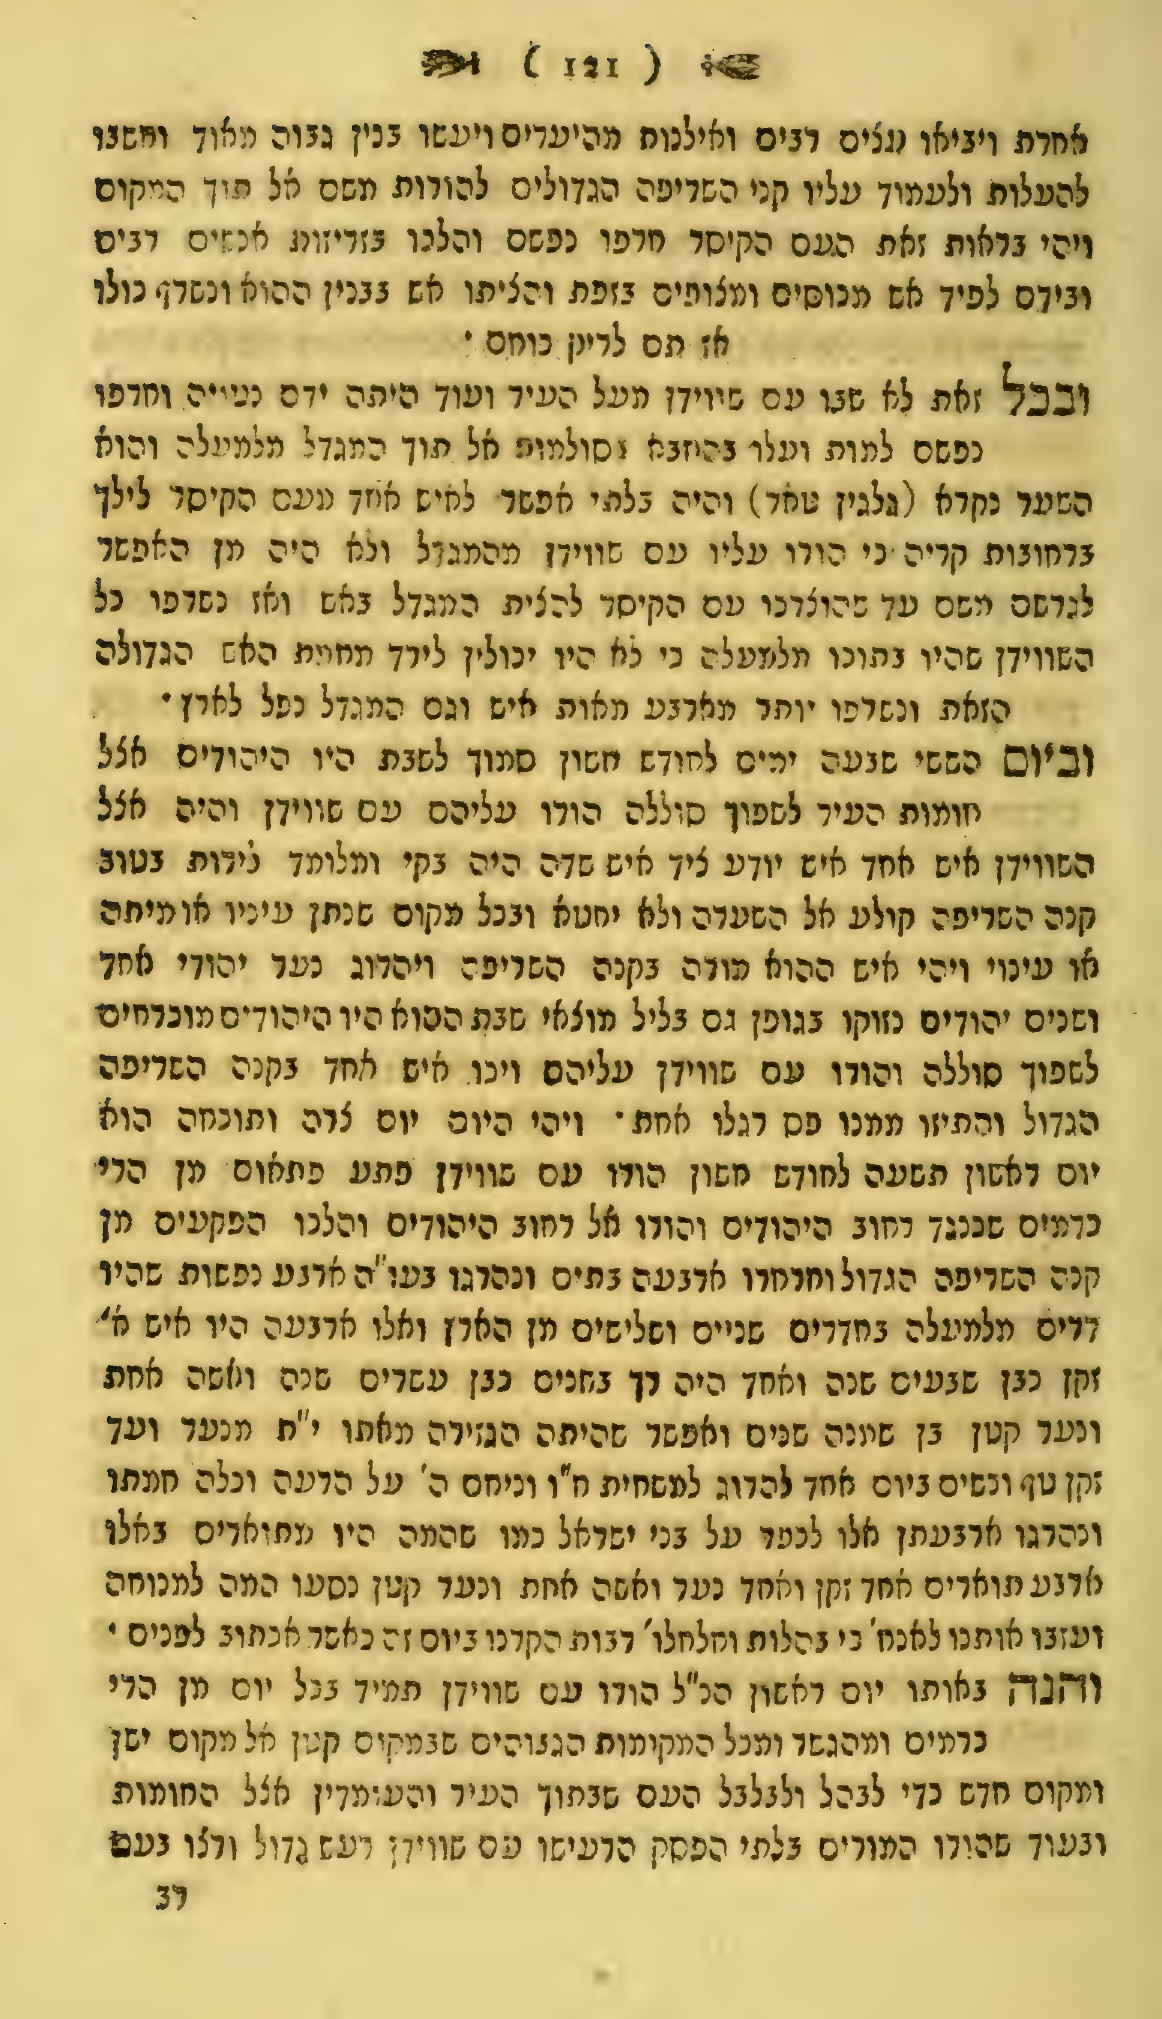 ( 121 )
אחרת ויביאו עצים רבים ואילנות מהיערים ויעשו בנין גבוה מאוד וחשבו
להעלות ולעמוד עליו קני השריפה הגדולים להורות משם אל תוך המקום
ויהי בראות זאת העם הקיסר חרפו נפשם והלכו בזריזות אנשים רבים
ובידם לפיד אש מכוסים ומצופים בזפת והציתו אש בבנין ההוא ונשרף כולו
אז תם לריק כוחם ·
ובכל זאת לא שבו עם שווידן מעל העיר ועוד היתה ידם נטוייה וחרפו
נפשם למות ועלו בהחבא בסולמות אל תוך המגדל מלמעלה והוא
השער נקרא (גלגין טאר) והיה בלתי אפשר לאיש אחד מעם הקיסר לילך
ברחובות קריה כי הורו עליו עם שווידן מהמגדל ולא היה מן האפשר
לגרשם משם עד שהוצרכו עם הקיסר להצית המגדל באש ואז נשרפו כל
השווידן שהיו בתוכו מלמעלה כי לא היו יכולין לירד מחמת האש הגדולה
הזאת ונשרפו יותר מארבע מאות איש וגם המגדל נפל לארץ ·
וביום הששי שבעה ימים לחודש חשון סמוך לשבת היו היהודים אצל
חומות העיר לשפוך סוללה הורו עליהם עם שווידן והיה אצל
השווידן איש אחד איש יודע ציד איש שדה היה בקי ומלומד לירות בטוב
קנה השריפה קולע אל השערה ולא יחטא ובכל מקום שנתן עיניו או מיתה
או עינוי ויהי איש ההוא מורה בקנה השריפה ויהרוג נער יהודי אחד
ושנים יהודים נזוקו בגופן גם בליל מוצאי שבת ההוא היו היהודים מוכרחים
לשפוך סוללה והורו עם שווידן עליהם ויכו איש אחד בקנה השריפה
הגדול והתיזו ממנו פס רגלו אחת · ויהי היום יום צרה ותוכחה הוא
יום ראשון תשעה לחודש חשון הורו עם שווידן פתע פתאום מן הרי
כרמים שכנגד רחוב היהודים והורו אל רחוב היהודים והלכו הפקעים מן
קנה השריפה הגדול וחרחרו ארבעה בתים ונהרגו בעו"ה ארבע נפשות שהיו
דרים מלמעלה בחדרים שניים ושלישים מן הארץ ואלו ארבעה היו איש א'
זקן כבן שבעים שנה ואחד היה רך בשנים כבן עשרים שנה ואשה אחת
ונער קטן בן שמנה שנים ואפשר שהיתה הגזירה מאתו י"ת מנער ועד
זקן טף ונשים ביום אחד להרוג למשחית ח"ו וניחם ה' על הרעה וכלה חמתו
ונהרגו ארבעתן אלו לכפר על בני ישראל כמו שהמה היו מתוארים באלו
ארבע תוארים אחד זקן ואחד נער ואשה אחת ונער קטן נסעו המה למנוחה
ועזבו אותנו לאנח' כי בהלות וחלחלו' רבות הקרנו ביום זה כאשר אכתוב לפנים ·
והנה באותו יום ראשון הנ"ל הורו עם שווידן תמיד בכל יום מן הרי
כרמים ומהגשר ומכל המקומות הגבוהים שבמקום קטן אל מקום ישן
ומקום חדש כדי לבהל ולבלבל העם שבתוך העיר והעומדין אצל החומות
ובעוד שהורו המורים בלתי הפסק הרעישו עם שווידן רעש גדול ורצו בעם
רב